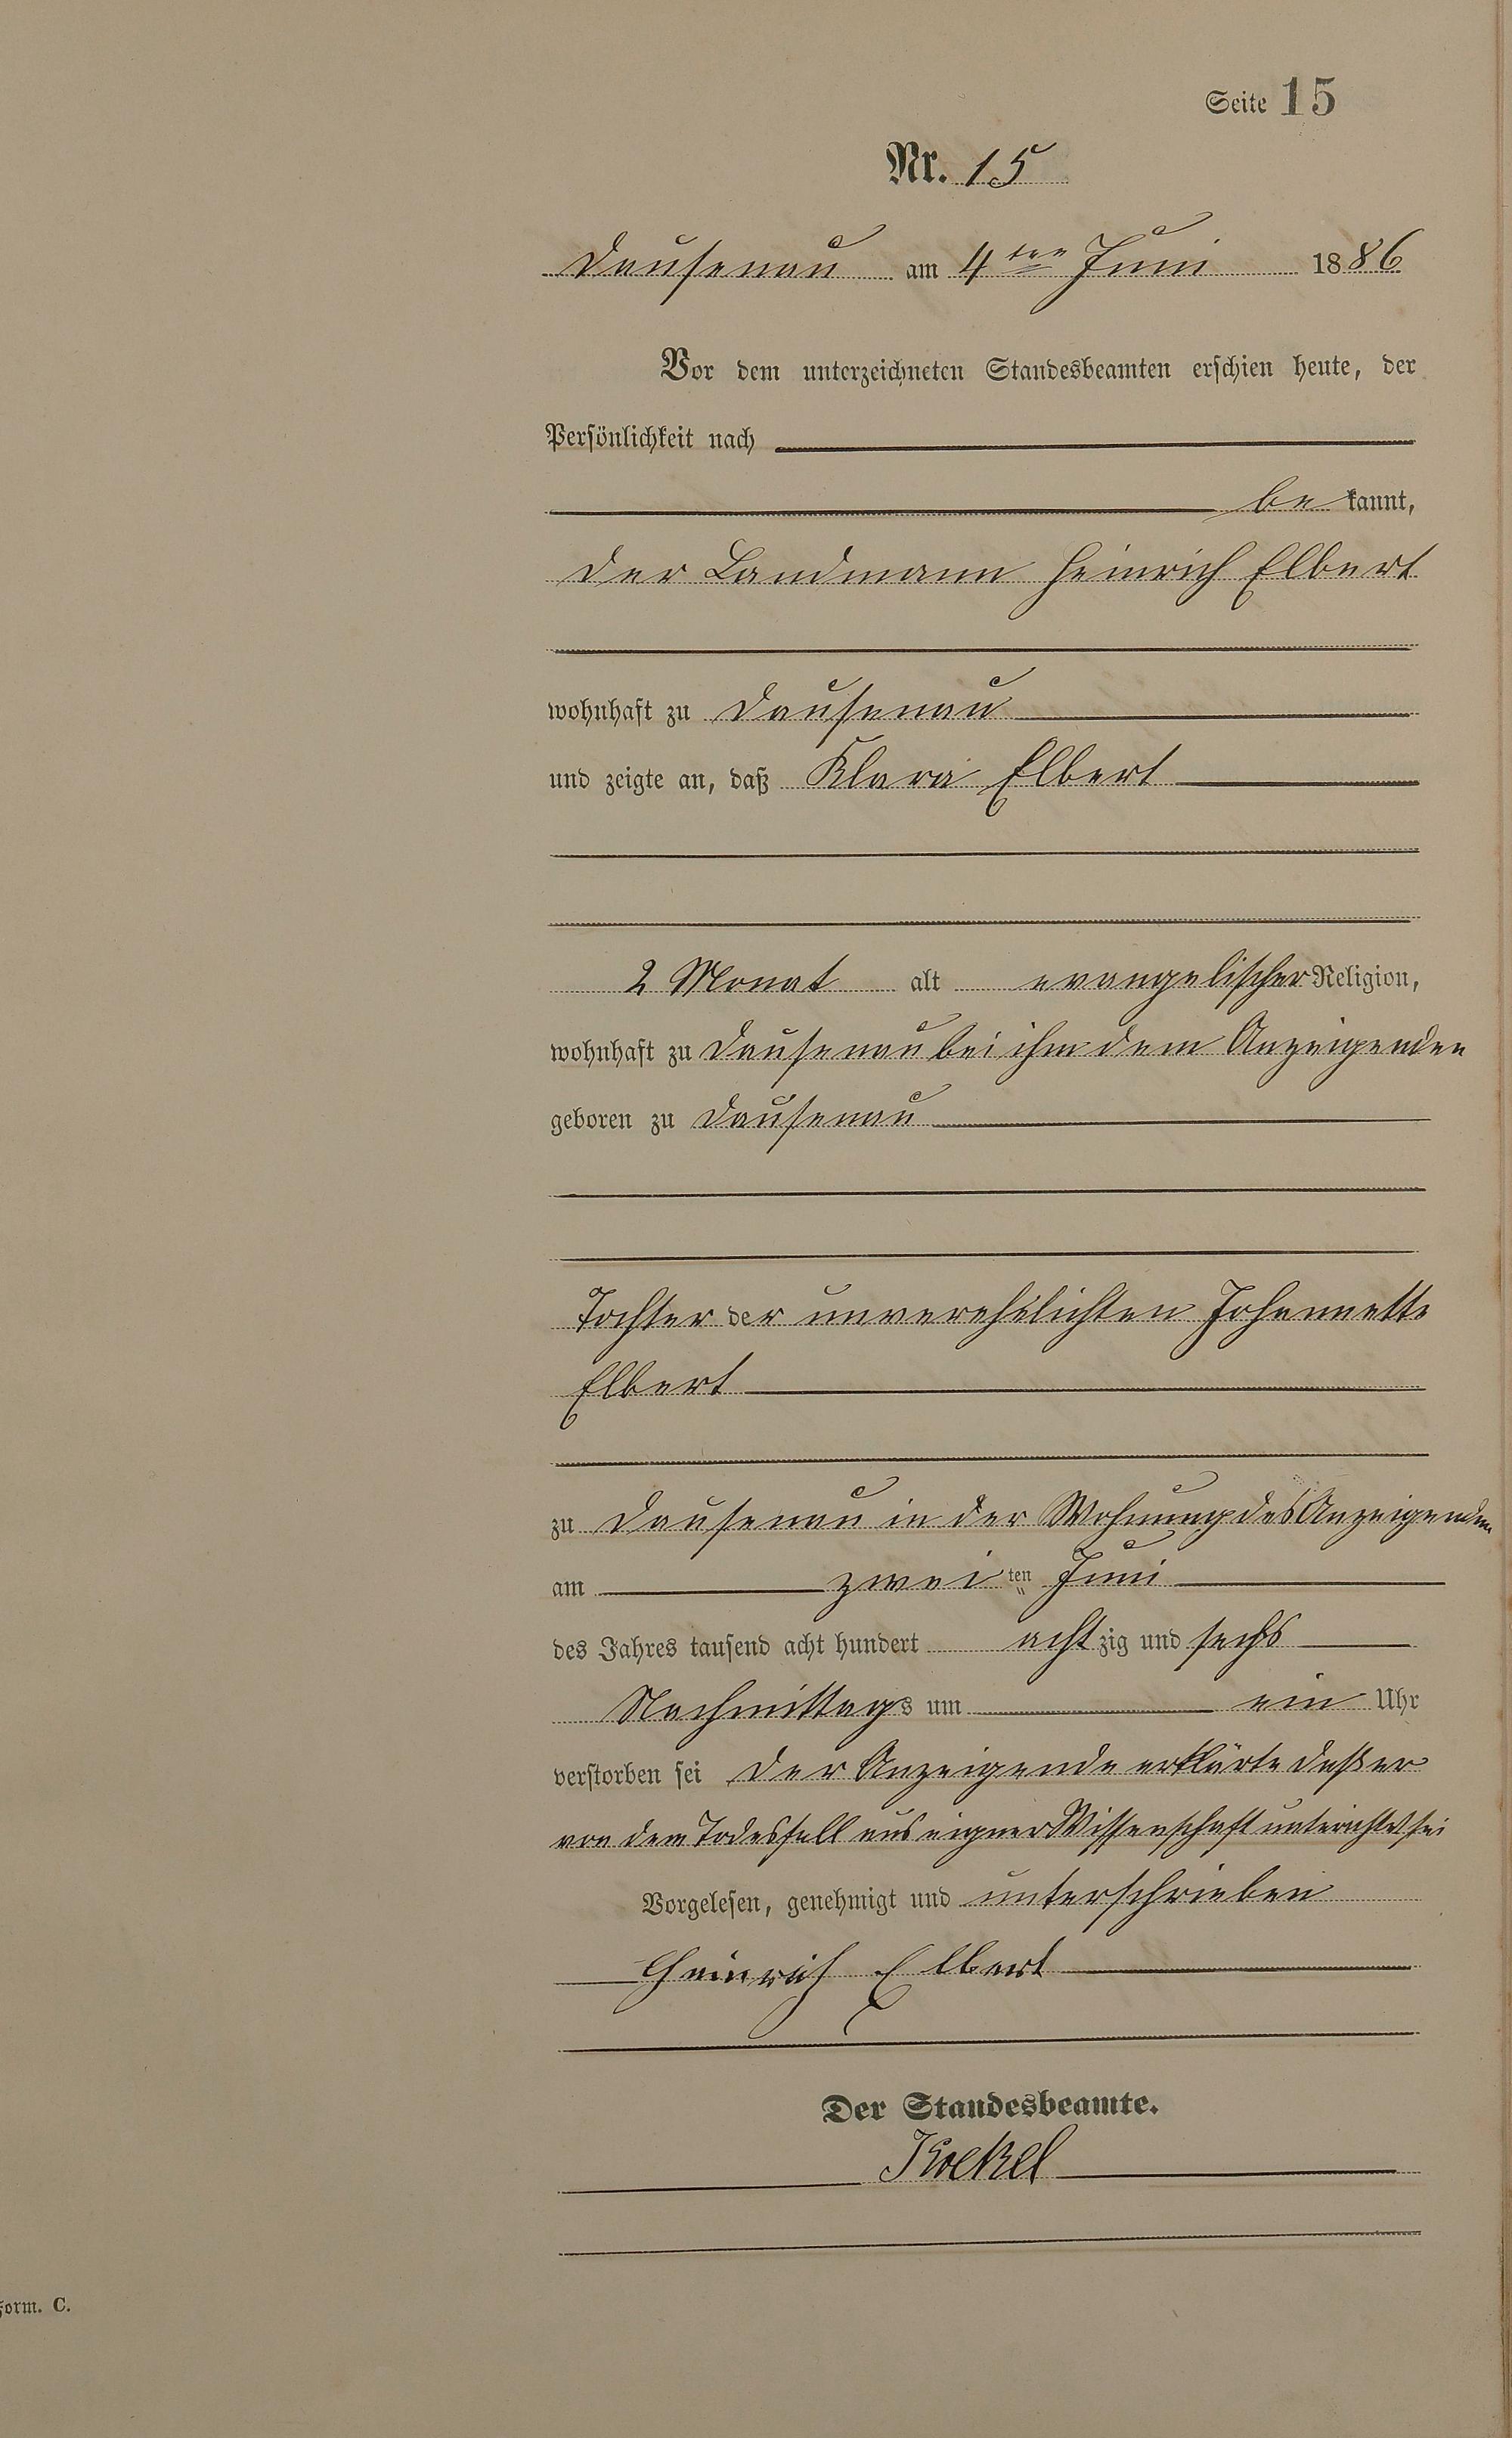 Seite 15
Nr. 15
Dausenau am 4ten Juni 1886
Vor dem unterzeichneten Standesbeamten erschien heute, der
Persönlichkeit nach
be kannt,
der Landmann Heinrich Elbert
wohnhaft zu Dausenau
und zeigte an, daß Klara Elbert
2 Monat alt evangelischer Religion,
wohnhaft zu Dausenau bei ihm dem Anzeigenden
geboren zu Dausenau
Tochter der unverehelichten Johannette
Elbert
zu Dausenau in der Wohnung des Anzeigenden
am zwei ten Juni
des Jahres tausend acht hundert acht zig und sechs
Nachmittags um ein Uhr
verstorben sei der Anzeigende erklärte daß er
von dem Todesfall aus eigner Wissenschaft unterichtet sei
Vorgelesen, genehmigt und unterschrieben
Heinrich Elbert
Der Standesbeamte.
Form. C.